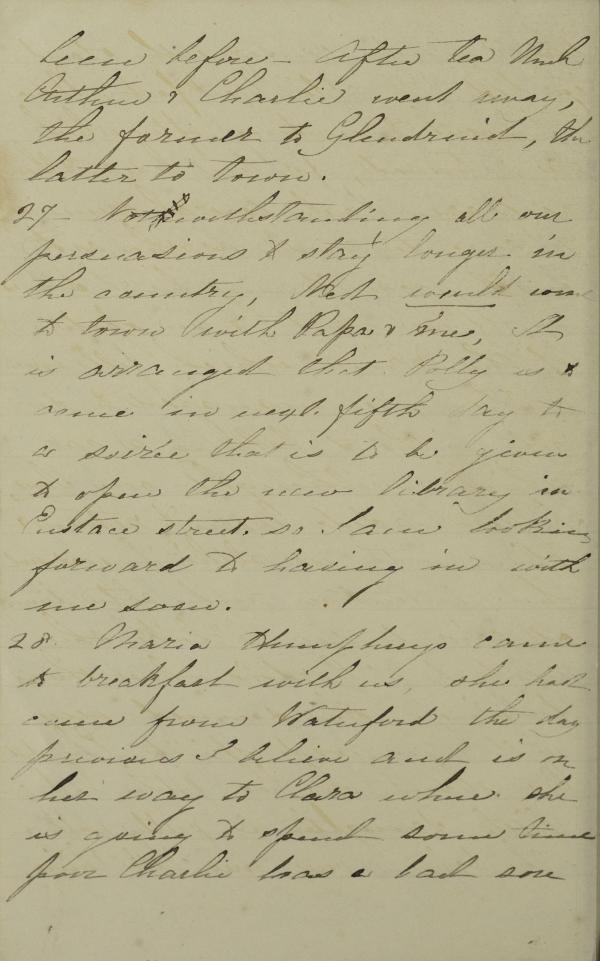 been before - After tea Uncle
Arthur & Charlie went away,
the former to Glendruid, the
latter to town.
27 - Notwithstanding all our
persuasions to stay longer in
the country, Ned would come
to town with Papa & me, It
is arranged that Polly is to
come in next fifth day to
a soirée that is to be given
to open the new library in
Eustace street. so I am looking
forward to having in with
me soon.
28 Maria Humphrys came
to breakfast with us, she had
come from Waterford the day
previous I believe and is on
her way to Clara where she
is going to spend some time
poor Charlie has a bad sore